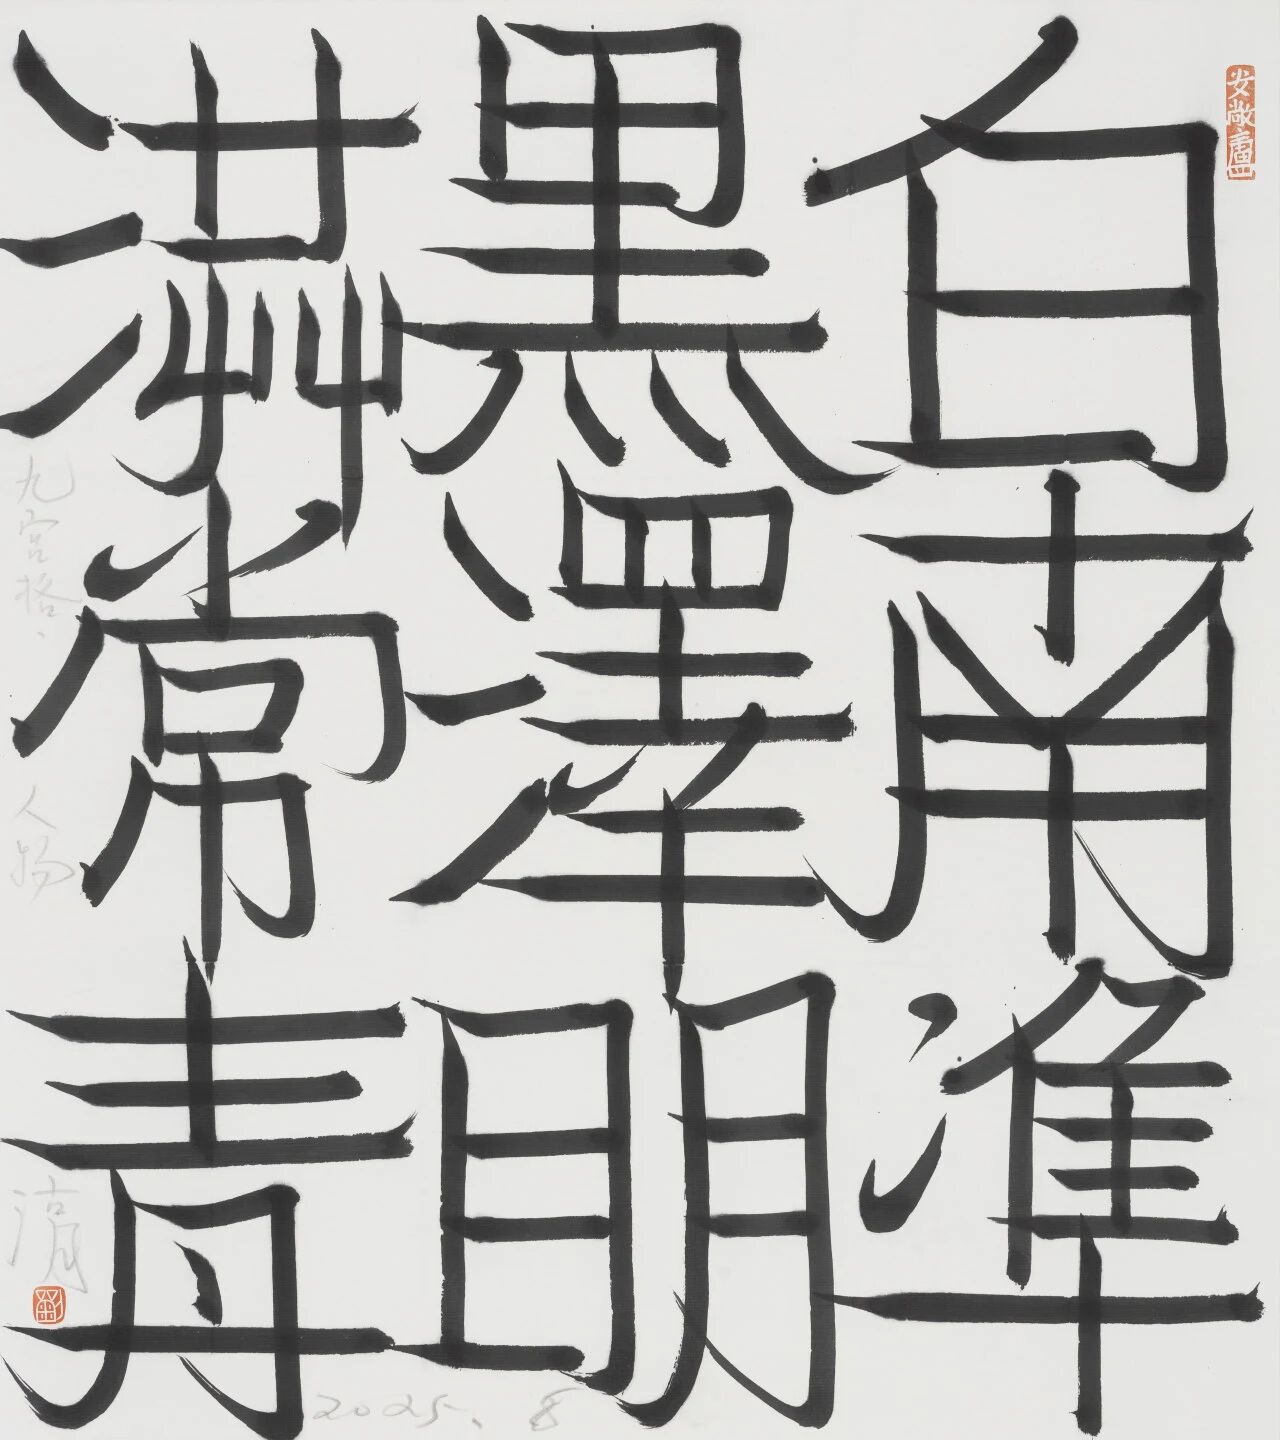 白南準
黑澤明
洪常青
九宫格、人物
清
2025、8
安敞廬